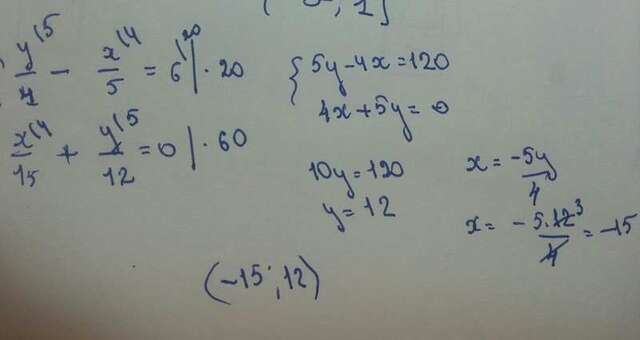 , 1]
y/4 \5 - x/5 \4 = 6 \20 | · 20
x/15 \4 + y/12 \5 = 0 | · 60
{ 5y - 4x = 120
4x + 5y = 0
10y = 120
y = 12
x = -5y/4
x = - 5·12³/4 = -15
(-15; 12)